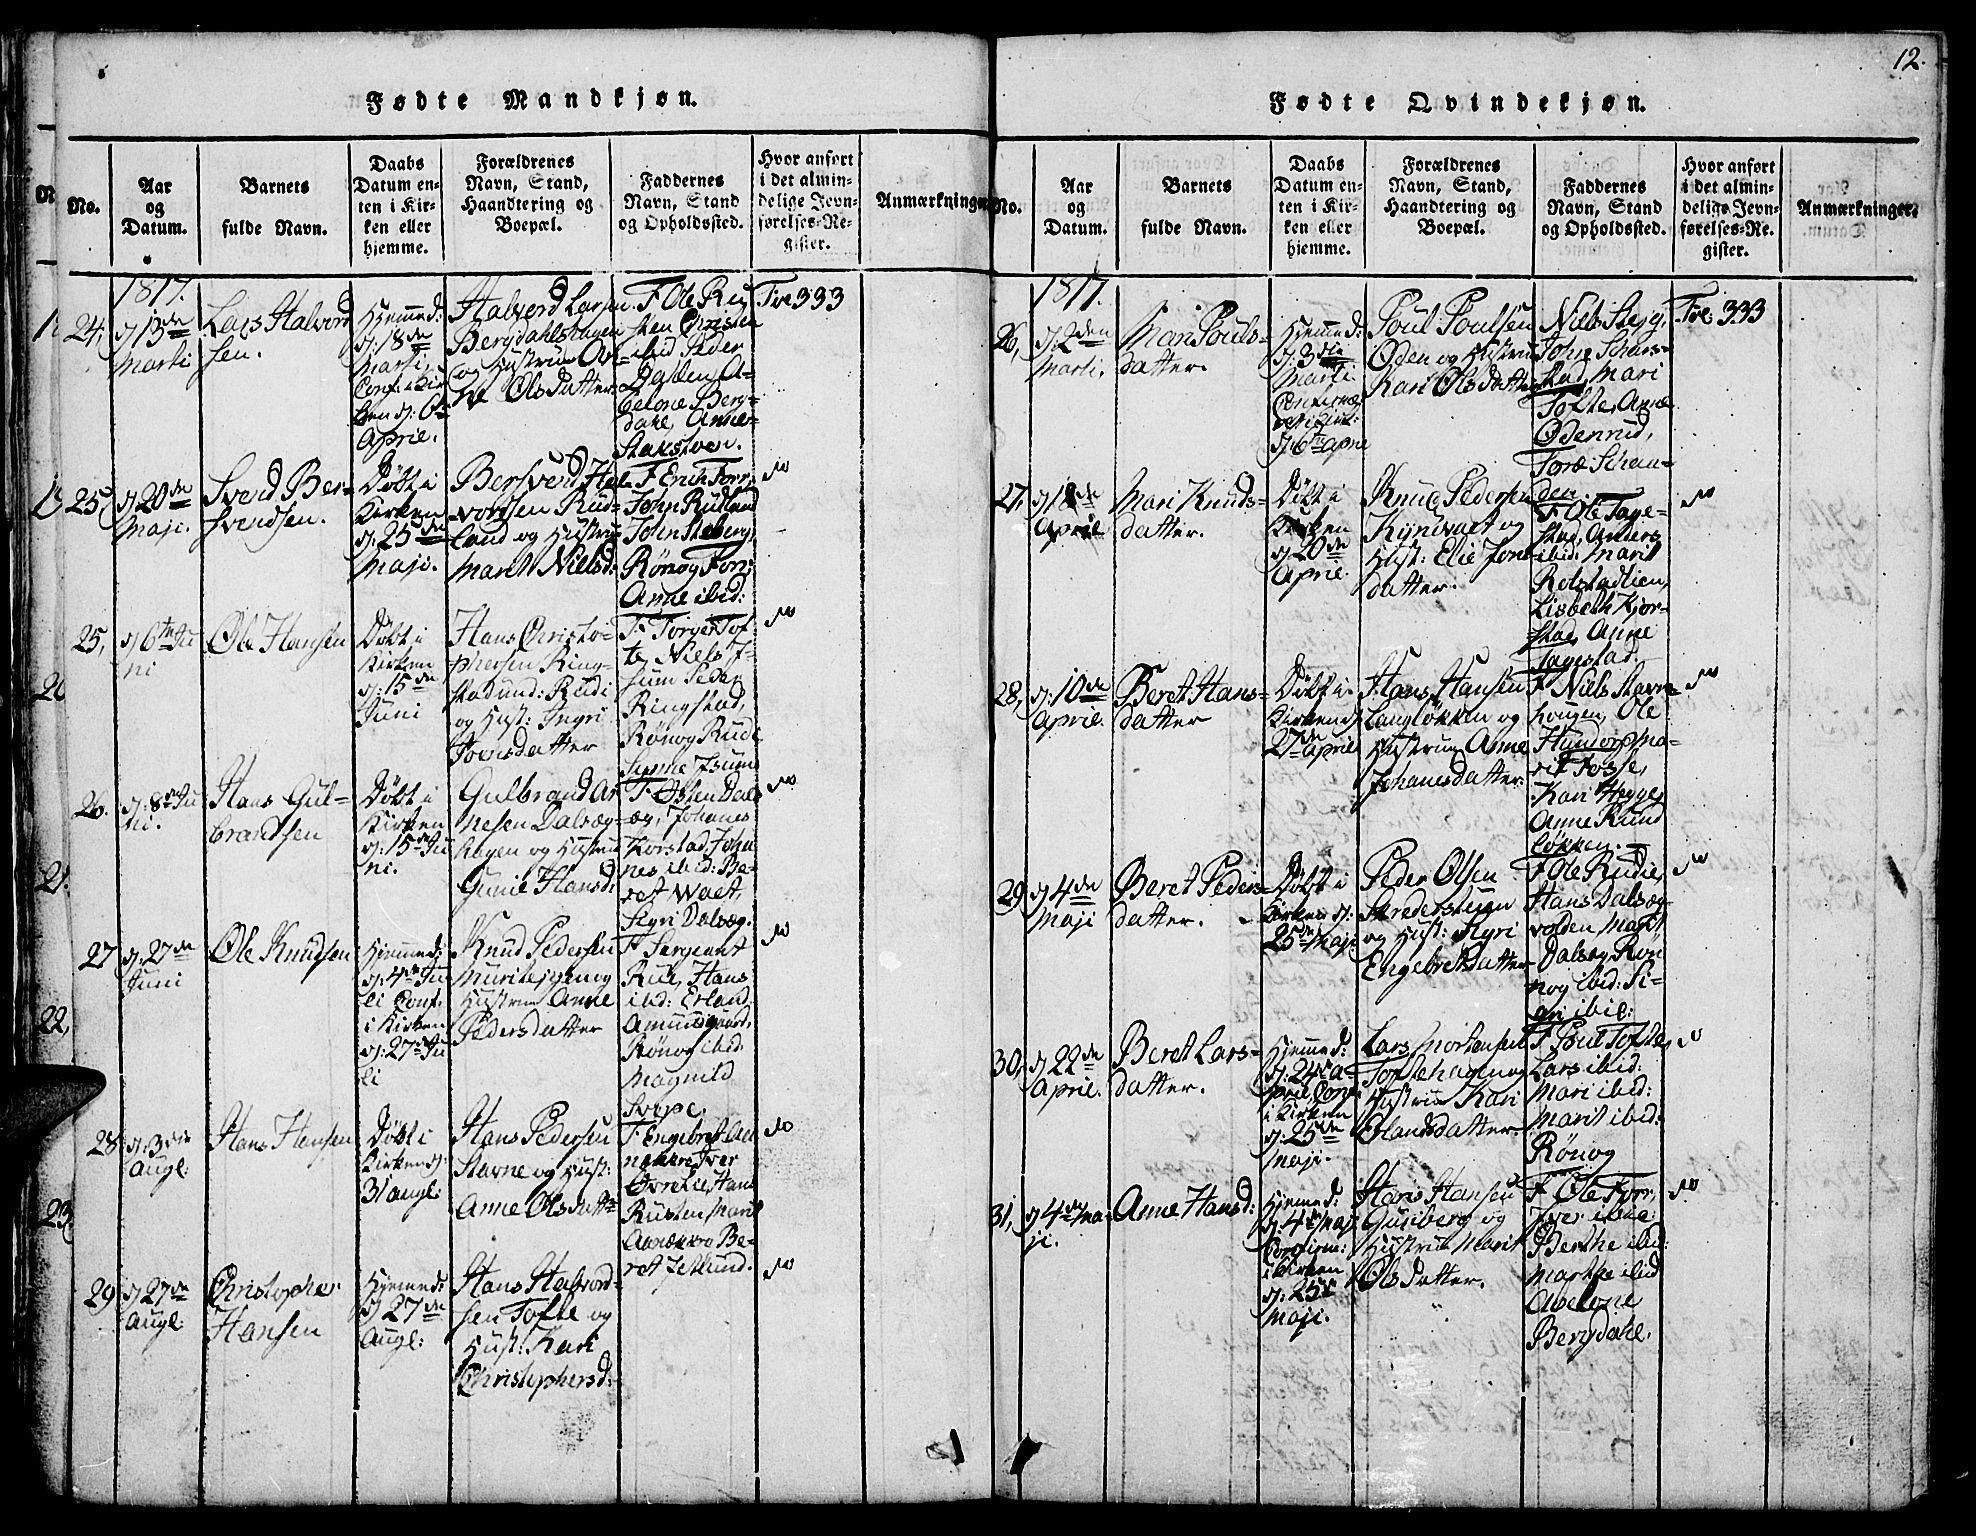 12.
Fødte Mandkjøn.
No.
Aar
og
Datum.
Barnets
fulde Navn.
Daabs
Datum en-
ten i Kir-
ken eller
hjemme.
Forældrenes
Navn, Stand,
Haandtering og
Boepæl.
Faddernes
Navn, Stand
og Opholdssted.
Hvor anført
i det almin-
delige Jevn-
førelses-Re-
gister.
Anmærkninger
1817.
24,
d: 13de
Marti
Lars Halvord
sen.
Hjemme d:
d: 18de
Marti
Conf: i Kir
ken d: 6te
April.
Halvord Larsen
Bergdahlshagen
og Hustrue
Ols datter
F Ole Ru
sten Christen
ibid Peder
Dahlen, A-
belone Berg-
dahl, Anne
Stakstuen.
Fol: 333
25
d: 20de
Maji.
Svend Ber-
svendsen.
Døbt i
Kirken
d: 25de
Maji.
Bersvend Hal
vordsen Rud-
land og Hustru
Marit Nielsd:
F Erich Forr,
John Rudland
John Steberg,
Rønog Forr,
Anne ibid:
25,
d: 6te Ju
ni
Ole Hansen
Døbt i
Kirken
d: 15de
Juni
Hans Christo-
phersen Ring-
stad und: Rudi
og Hust: Ingri
Joensdatter
F Torger Tof-
te, Niels I-
sum Peder
Ringstad,
Rønog Rudi
Synne Isum
26.
d: 8de Ju
ni.
Hans Gul-
brandsen
Døbt i
Kirken
d: 15de Ju
ni.
Gulbrand Ar
nesen Dalsæg-
hagen og Hustrue
Gunil Hansd:
F Østen Dals
æg, Johanes
Korstad, Joha
nes ibid: Be-
ret Wael,
Kyri Dalsæg.
27
d: 27de
Juni
Ole Knudsen
Hjemme d:
d: 4de Ju
li Conf.
i Kirken
d: 27de Ju
li
Knud Pedersen
Muristeigen og
Hustrue Anne
Pedersdatter
F Sergeant
Rul, Hans
ibid: Erland
Amundsgaard,
Rønog ibid.
Magnild
Svepe.
28
d: 3die
Augl:
Hans Hansen
Døbt i
Kirken d:
31 Augl:
Hans Pedersen
Stavne og Hust:
Anne Ols datter
F Engebret Aa
nekkre, Iver
Øvrelie, Hans
Rusten, Marit
Aanekkre Be-
ret Leklund.
29
d: 27de
Augl:
Christopher
Hansen
Hjemme d:
d: 27de
Augl:
Hans Halvord-
sen Tofte og
Hust: Kari
Christophersd:
Fødte Qvindekjøn.
No.
Aar
og
Datum.
Barnets
fulde Navn.
Daabs
Datum en-
ten i Kir-
ken eller
hjemme.
Forældrenes
Navn, Stand,
Haandtering og
Boepæl.
Faddernes
Navn, Stand
og Opholdssted.
Hvor anført
i det almin-
delige Jevn-
førelses-Re-
gister.
Anmærkninger.
1817.
26,
d: 2den
Marti.
Mari Pouls-
datter.
Hjemme d:
d: 3die
Marti
d: 6te April
Poul Poulsen
Øden og Hustrue
Kari Olsdatter
Niels Steig,
Johne Schars-
stad, Mari
Tofte, Anne
Ødenrud,
Toro Schau-
den.
Fol: 333
27,
April
Mari Knuds-
datter.
Døbt i
Kirken
d: 20de
April.
Knud Pedersen
Kyndvael og
Hust: Elie Jons
datter.
F Ole Tage-
stad, Anders
ibid: Marit
Rolstadlien,
Lisbeth Kjor-
stad, Anne
Tagestad.
28,
d: 10de
April.
Beret Hans-
datter
Døbt i
Kirken d:
27de April
Hans Hansen
Langløkken og
Hustrue Anne
Johanesdatter
F Niels Stavn-
haugen, Ole
Hundorp, Ma-
rit Fosse,
Kari Hegge,
Anne Rund
løkken.
29
d: 4de
Maji
Beret Peders-
datter.
Døbt i
Kirken d:
25de Maji
Peder Olsen
Skrederstuen
og Hust: Kyri
Engebretsdatter
F Ole Rudie,
Hans Dalsæg-
volden, Marit
Dalsæg, Røn
nog ibid: Si-
gri ibid:
30,
d: 22de
April.
Beret Lars-
datter.
Hjemme d:
d: 24de A-
pril, Conf:
i Kirken
d: 25de
Maji.
Lars Mortensen
Toftehagen og
Hustrue Kari
Erlandsdatter
F Poul Tofte,
Lars ibid:
Mari ibid:
Marit ibid:
Rønog
31,
d: 4de Ma
ji.
Anne Hansd:
Hjemme d:
d: 4de Maji
Confirm:
i Kirken
d: 25de
Maji.
Hans Hansen
Gusiberg og
Hustrue Marit
Ols datter.
F Ole Forr,
Iver ibid:
Berthe ibid:
Marthe ibid
Abelone
Bergdahl.